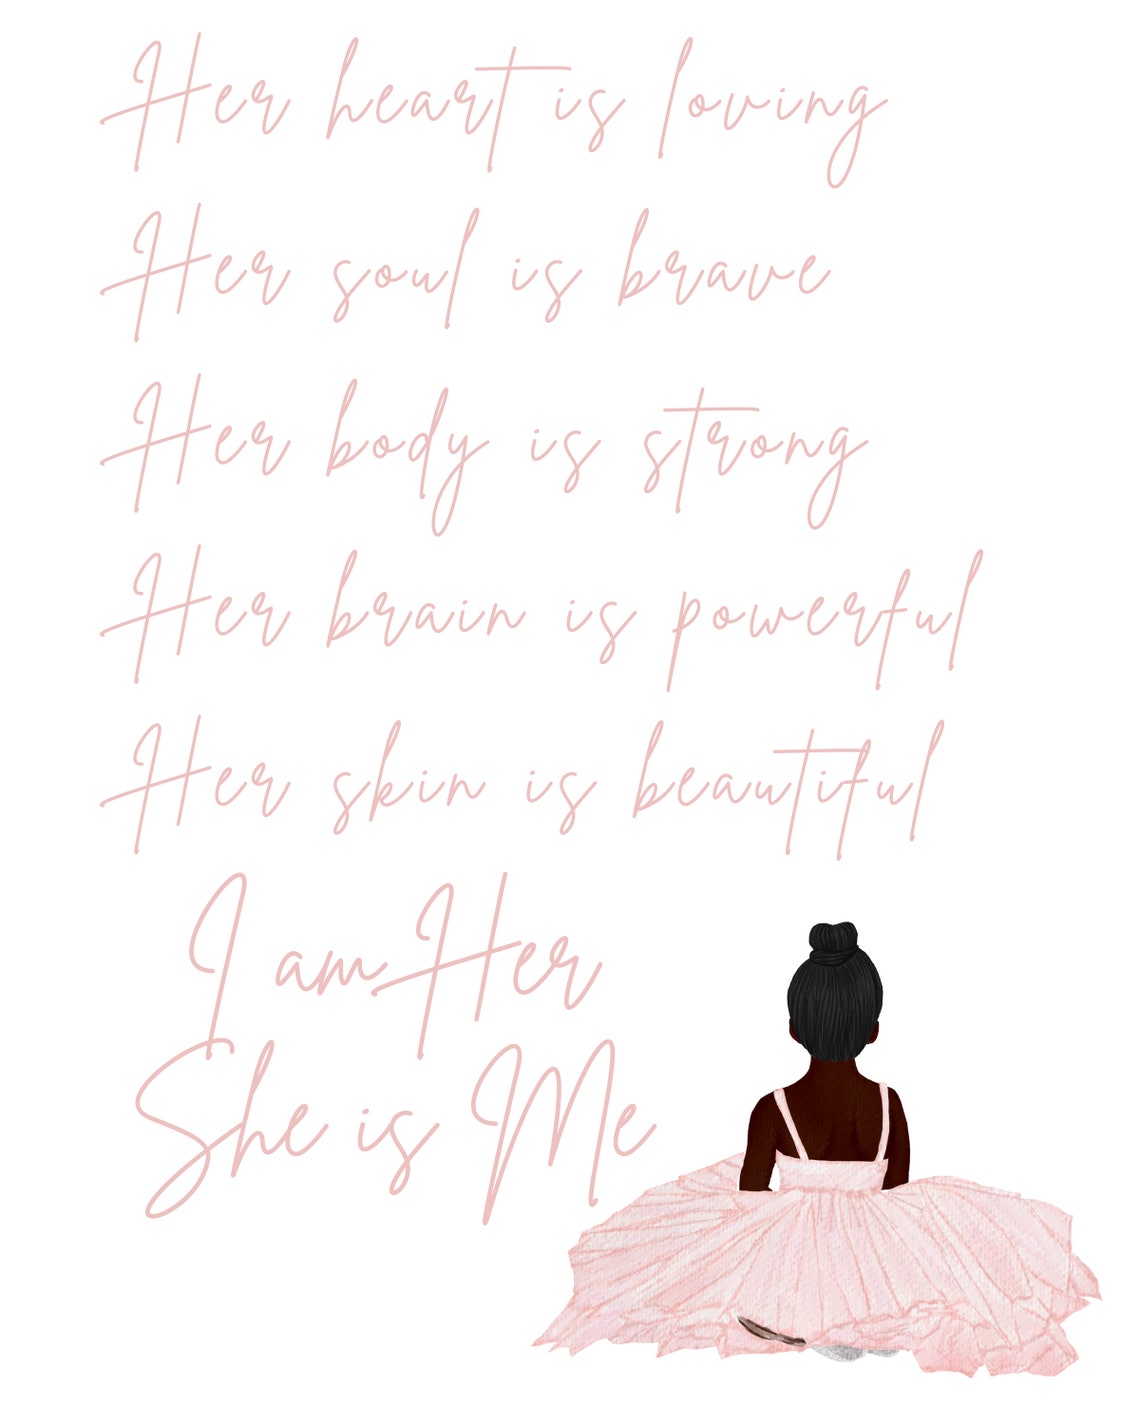 Her heart is loving
Her soul is brave
Her body is strong
Her brain is powerful
Her skin is beautiful
I am Her
She is Me